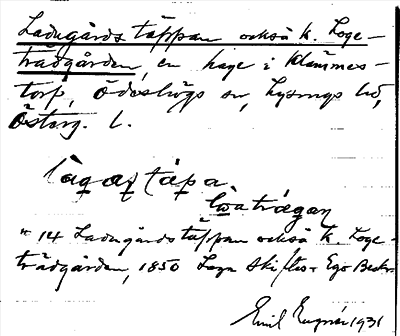 Ladugårdstäppan också k. Loge-
trädgården, en hage i Klämmes-
torp, Ödeshögs sn, Lysings hd,
Österg. l.
làgaṣtápa
lωatrágaṇ
" 14 Ladugårdstäppan också k. Loge-
trädgården, 1850 Laga Skiftes Ego Beskr
Emil 1931